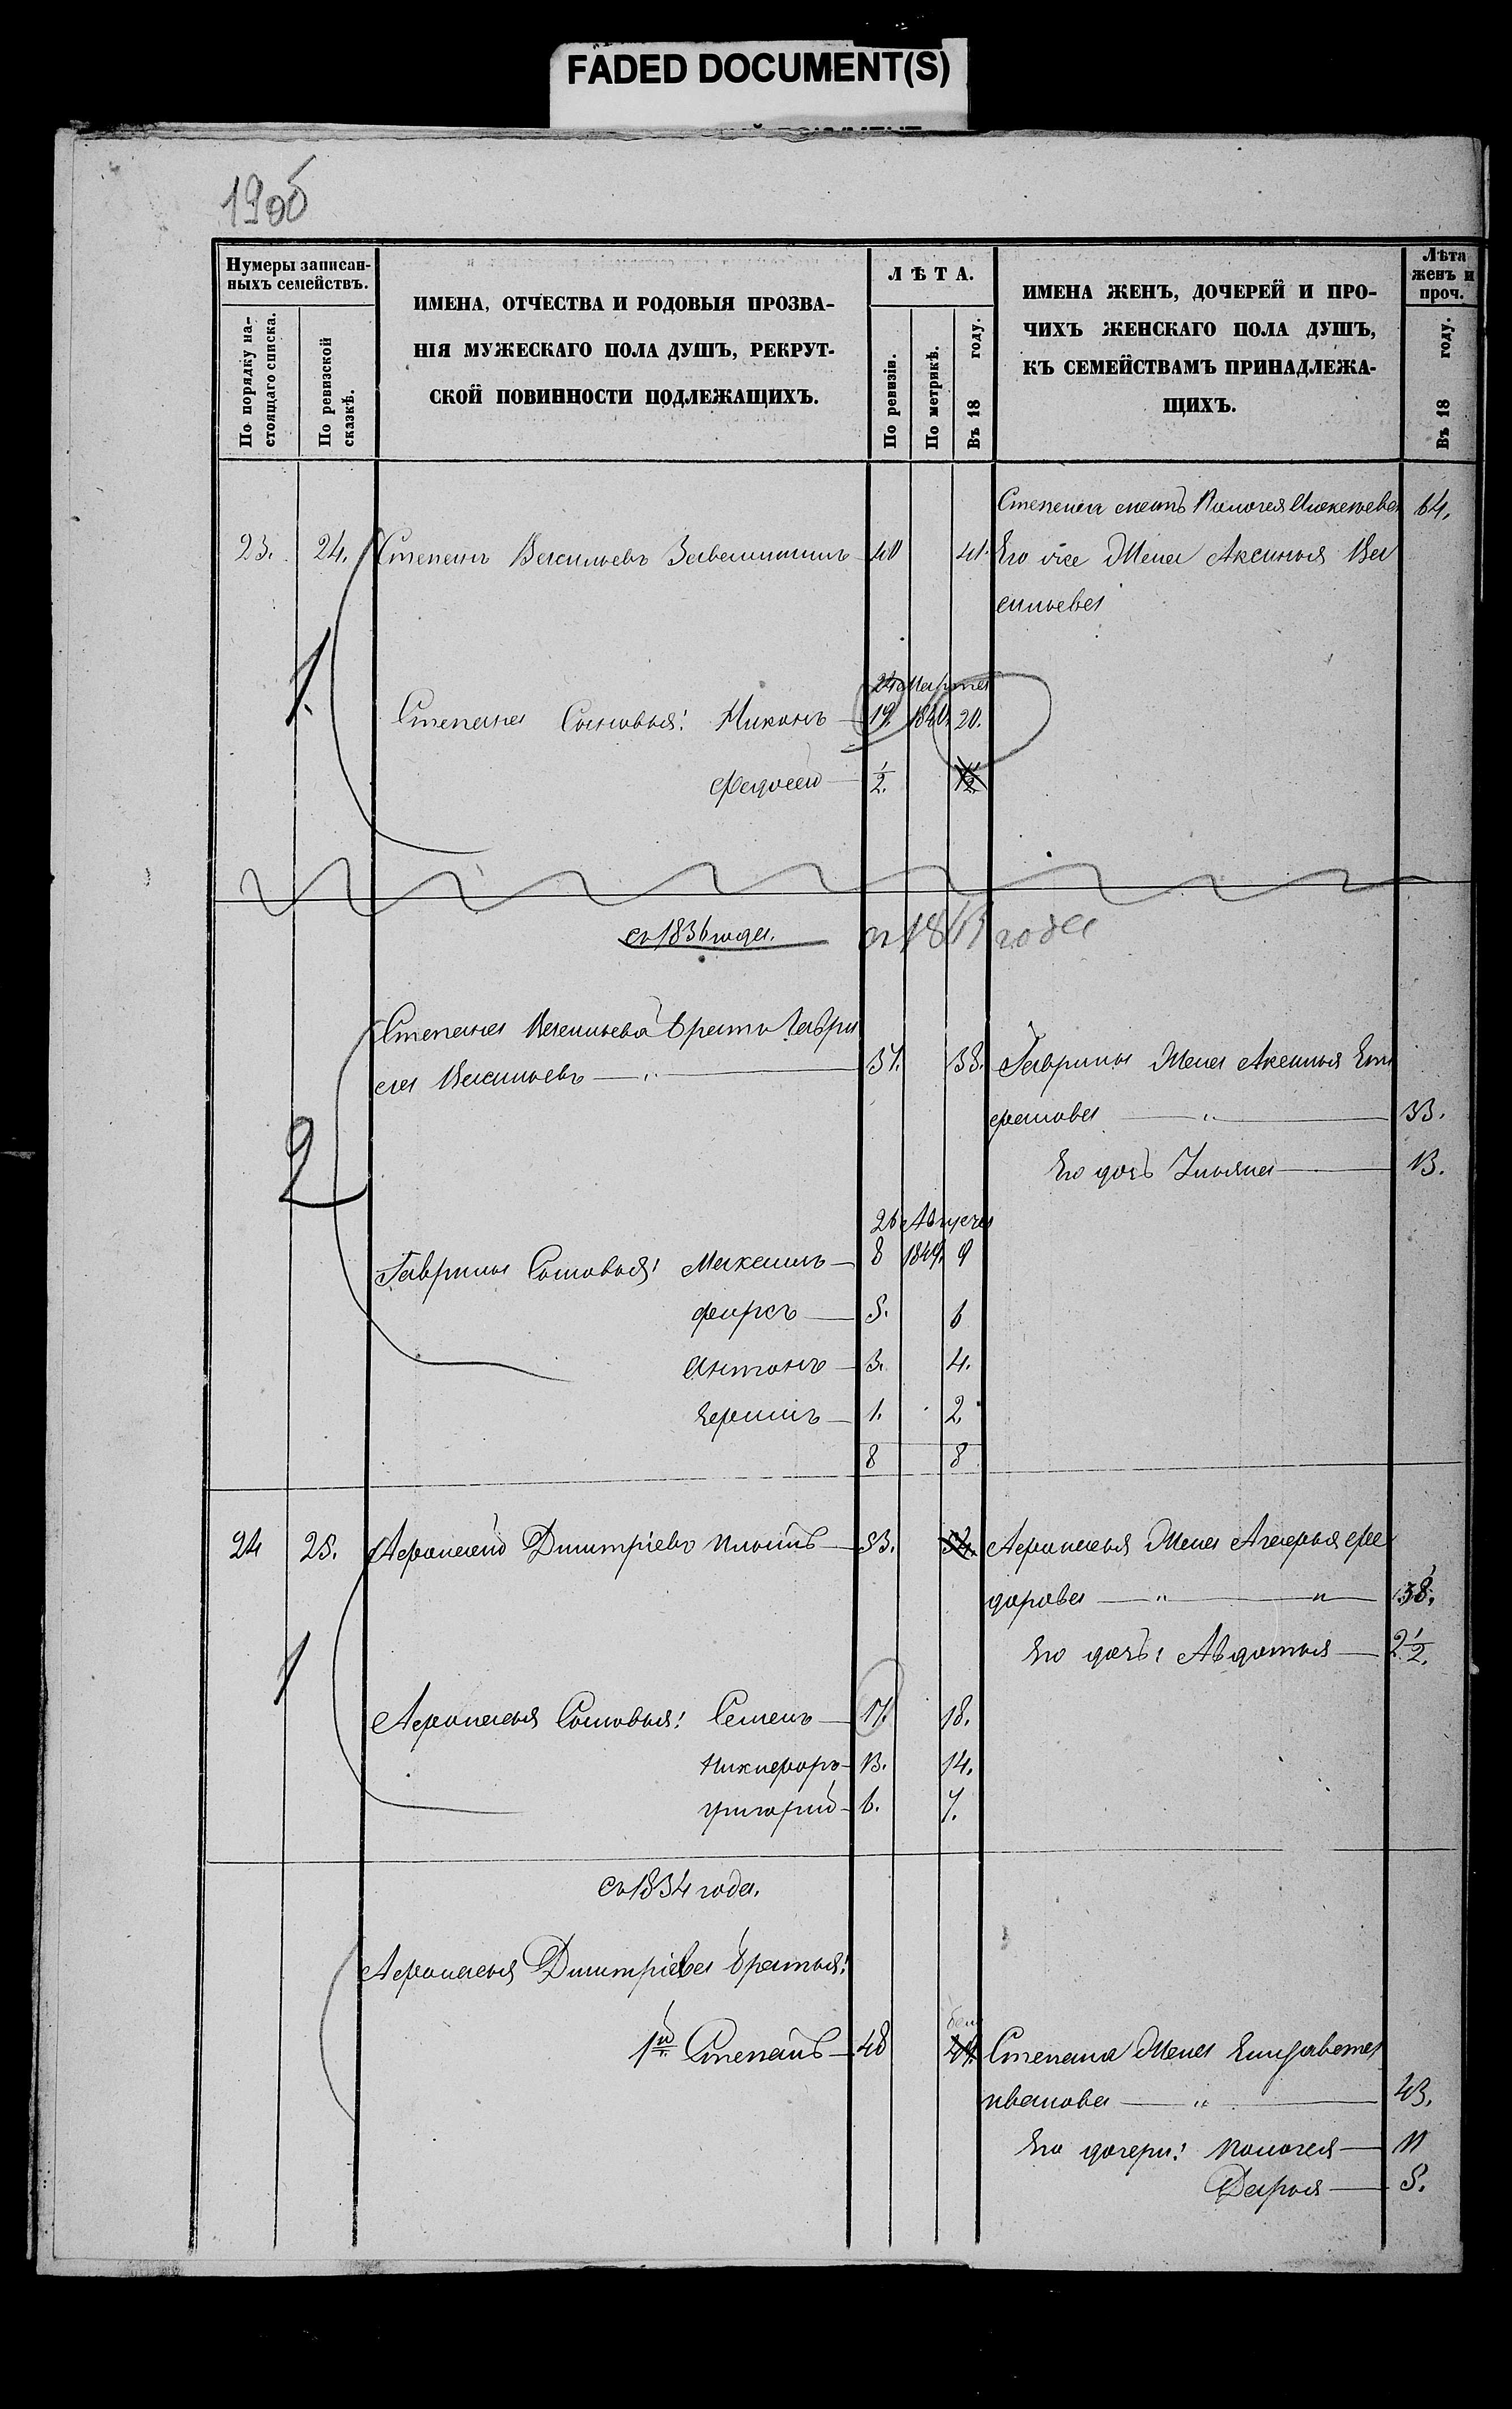 FADED DOCUMENT(S)
190об
Нумеры записан-
ныхъ семействъ.
По порядку на-
стоящаго списка.
По ревизской
сказкѣ.
ИМЕНА, ОТЧЕСТВА И РОДОВЫЯ ПРОЗВА-
НІЯ МУЖЕСКАГО ПОЛА ДУШЪ, РЕКРУТ-
СКОЙ ПОВИННОСТИ ПОДЛЕЖАЩИХЪ.
ЛѢТА.
По ревизіи.
По метрикѣ.
Въ 18 году.
ИМЕНА ЖЕНЪ, ДОЧЕРЕЙ И ПРО-
ЧИХЪ ЖЕНСКАГО ПОЛА ДУШЪ,
КЪ СЕМЕЙСТВАМЪ ПРИНАДЛЕЖА-
ЩИХЪ.
Лѣта
женъ и
проч.
Въ 18 году.
Степана мать Пологея 64.
23. 24. Степанъ Васильевъ 40 41. Его же Жена Аксинья Ва
сильева
1.
24 Марта
Степана Сыновья: Никонъ 19. 1840. 20.
Федосей 1/2.
съ 1836 года. съ года
Степана Васильева братъ Гаври
ла Васильевъ 37. 38. Гаврилы Жена Аксинья Ем
33.
Его дочь Ульяна 13.
2
26 Августа
Гаврилы Сыновья: Максимъ 8 1849. 9
фирсъ 5. 6
Антонъ 3. 4.
Ермилъ 1. 2.
8 8
24 25. Афонасей Дмитріевъ 53. 54. Афонасья Жена Агафья Фе
дорова 38.
Его дочь: Авдотья 2 1/2.
1
Афонасья Сыновья: Семенъ 17. 18.
Никифоръ 13. 14.
григорий 6. 7.
съ 1834 года.
Афонасья Дмитріева братья:
1й Степанъ 48 Степана Жена Елизавета
иванова 43.
Его дочери: Пологея 11
Дарья 5.